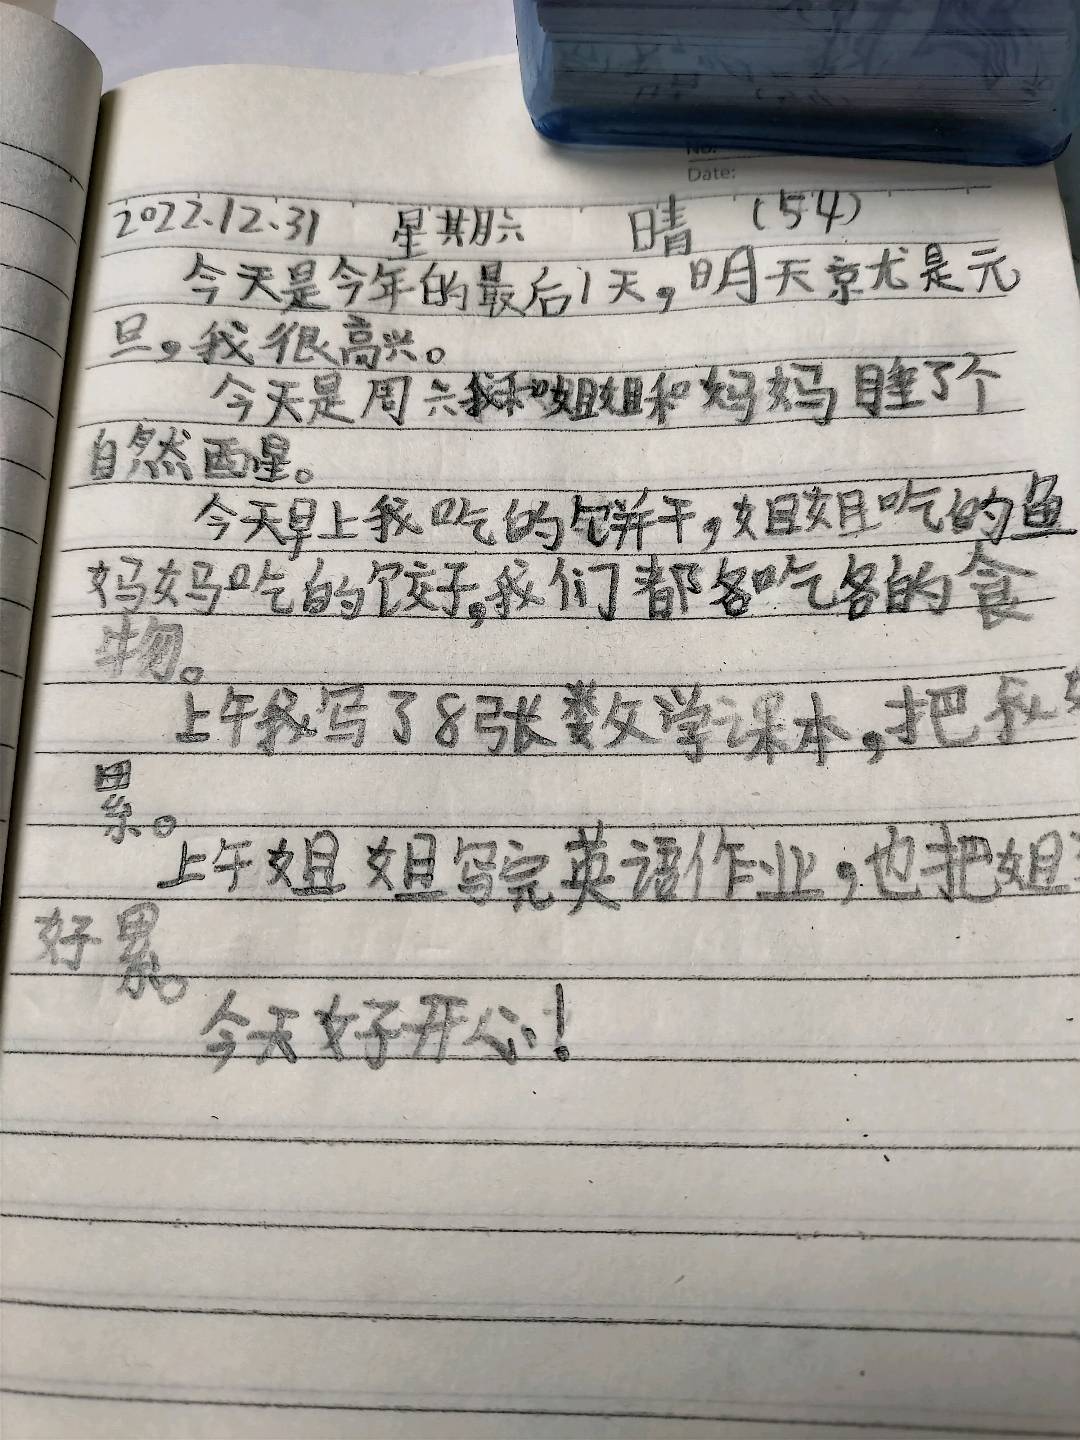 No.
Date:
2022.12.31 星期六 晴 (54)
今天是今年的最后1天，明天就是元
旦，我很高兴。
今天是周六我和姐姐和妈妈睡了个
自然醒。
今天早上我吃的饼干，姐姐吃的鱼
妈妈吃的饺子，我们都各吃各的食
物。
上午我写了8张数学课本，把我好
累。
上午姐姐写完英语作业，也把姐
好累。
今天好开心！